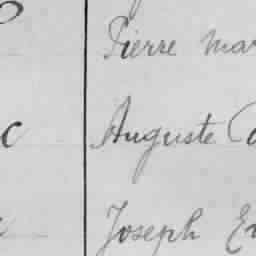 Pierre Mar
c Auguste
Joseph